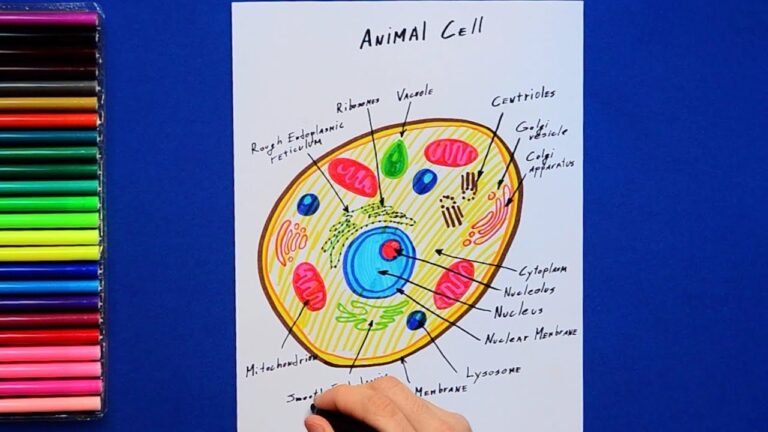 ANIMAL CELL
Ribosomes
VACUOLE
CENTRIOLES
Rough Endoplasmic
RETICULUM
Golgi
vesicle
Golgi
apparatus
Cytoplasm
Nucleolus
Nucleus
Nuclear Membrane
Mitochondrion
Lysosome
Smooth
Membrane